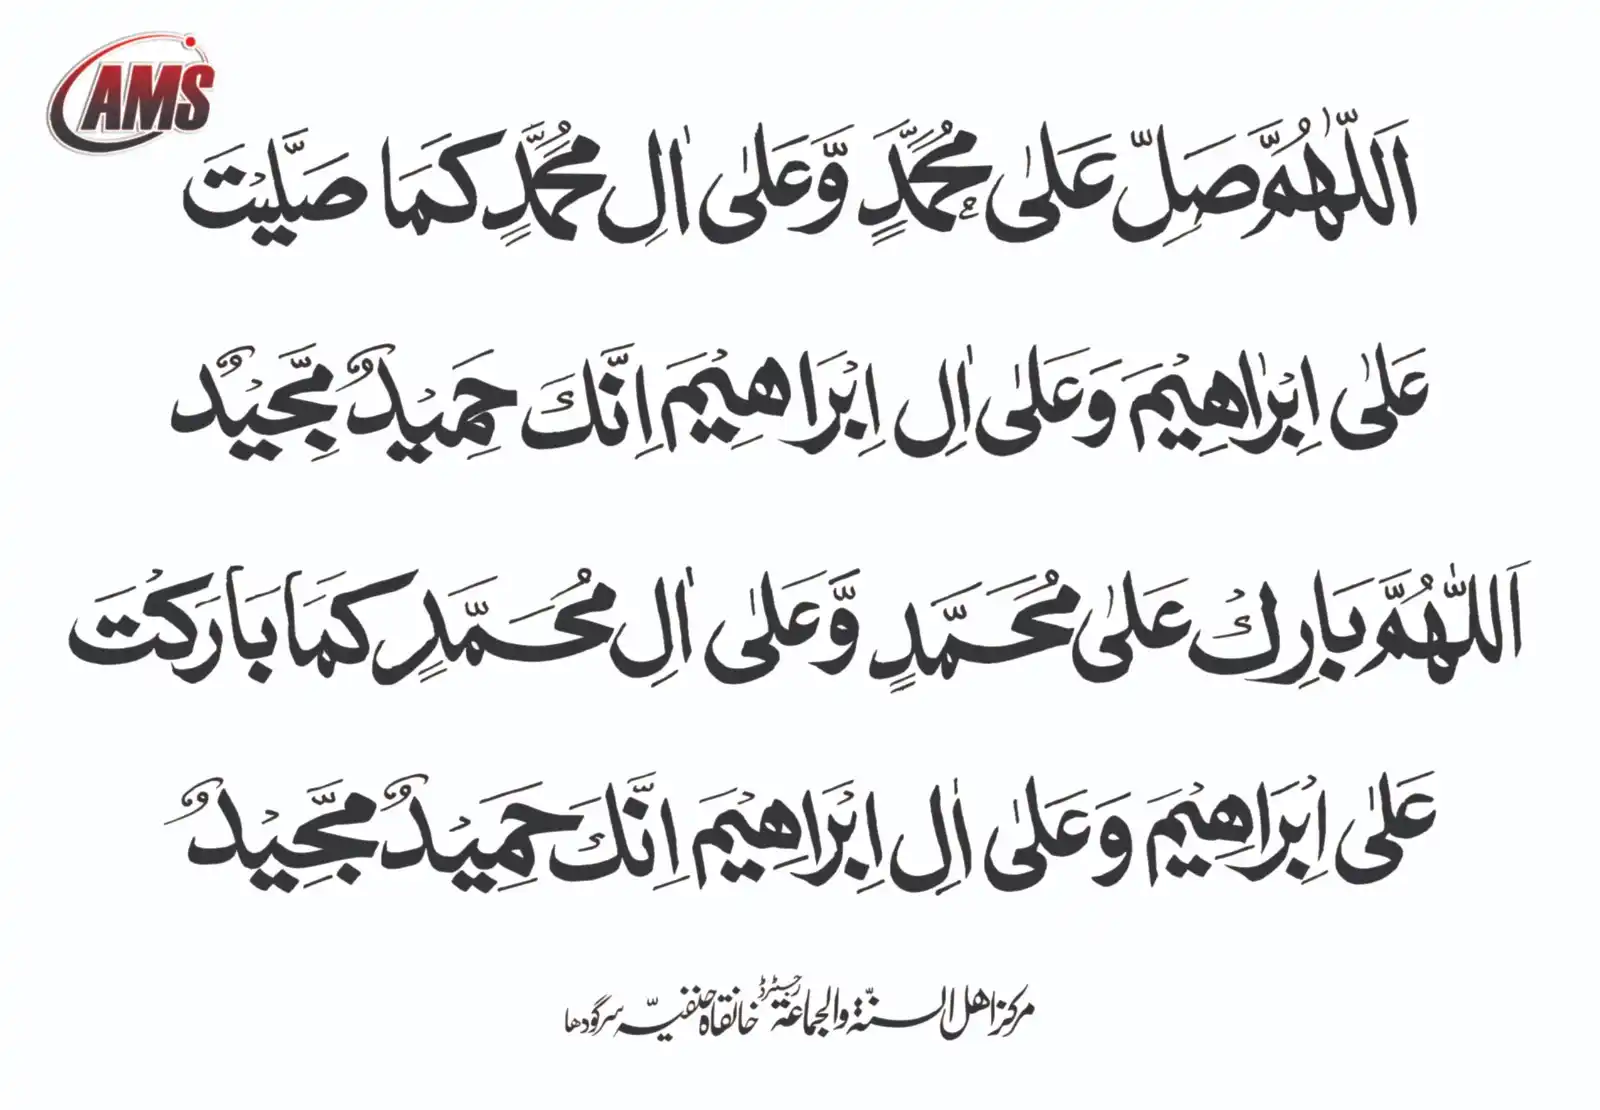 AMS
اَللّٰهُمَّ صَلِّ عَلىٰ مُحَمَّدٍ وَّعَلىٰ اٰلِ مُحَمَّدٍ كَمَا صَلَّيْتَ
عَلىٰ اِبْرَاهِيْمَ وَعَلىٰ اٰلِ اِبْرَاهِيْمَ اِنَّكَ حَمِيْدٌ مَّجِيْدٌ
اَللّٰهُمَّ بَارِكْ عَلىٰ مُحَمَّدٍ وَّعَلىٰ اٰلِ مُحَمَّدٍ كَمَا بَارَكْتَ
عَلىٰ اِبْرَاهِيْمَ وَعَلىٰ اٰلِ اِبْرَاهِيْمَ اِنَّكَ حَمِيْدٌ مَّجِيْدٌ
مرکز اهل السنّة والجماعة رجسٹرڈ خانقاہ حنفیہّ سرگودها